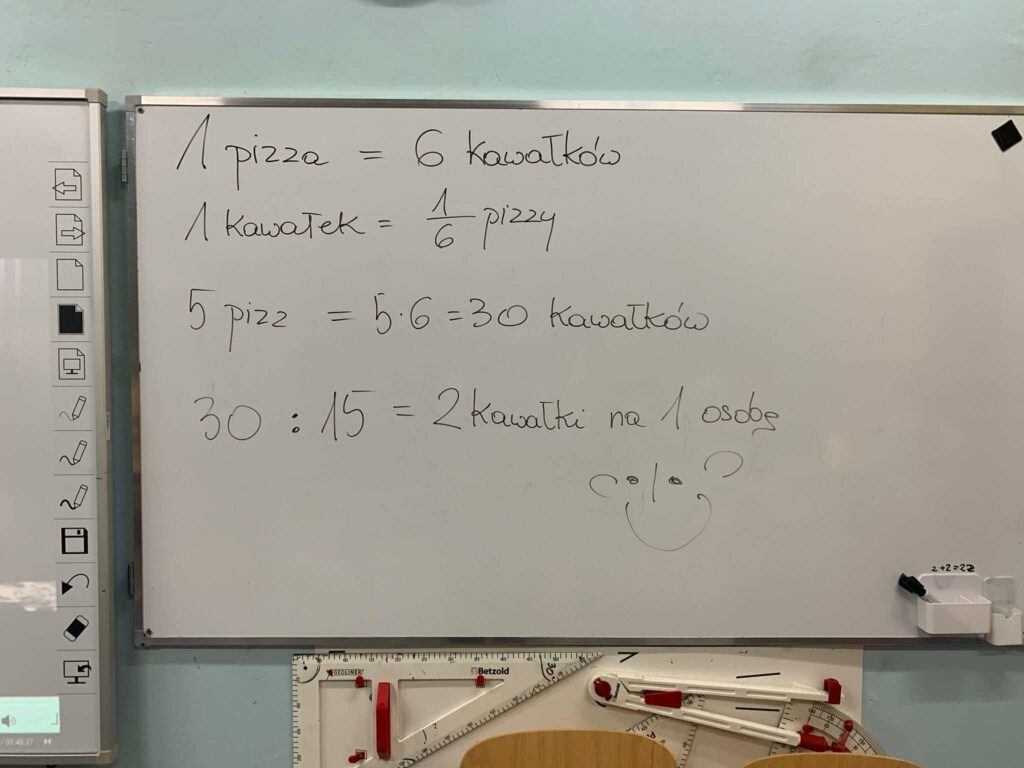 1 pizza = 6 kawałków
1 kawałek = 1/6 pizzy
5 pizz = 5·6 = 30 kawałków
30 : 15 = 2 kawałki na 1 osobę
2+2=22
Betzold